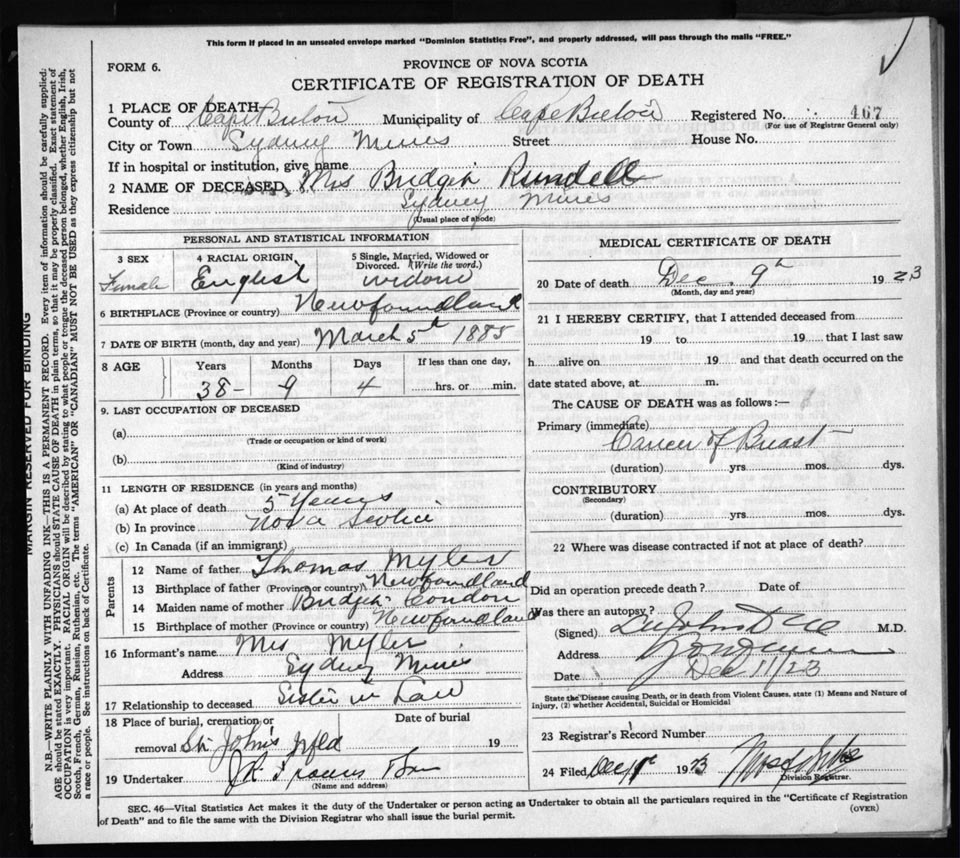 This form if placed in an unsealed envelope marked "Dominion Statistics Free", and properly addressed, will pass through the mails "FREE."
FORM 6.
PROVINCE OF NOVA SCOTIA
CERTIFICATE OF REGISTRATION OF DEATH
1 PLACE OF DEATH—
County of Cape Breton Municipality of Cape Breton Registered No. 467
(For use of Registrar General only)
City or Town Sydney Mines Street House No.
If in hospital or institution, give name
2 NAME OF DECEASED Mrs Bridget Rundell
Residence Sydney Mines
(Usual place of abode)
PERSONAL AND STATISTICAL INFORMATION
3 SEX 4 RACIAL ORIGIN 5 Single, Married, Widowed or Divorced. (Write the word.)
Female English widow
6 BIRTHPLACE (Province or country) Newfoundland
7 DATE OF BIRTH (month, day and year) March 5th 1885
8 AGE Years Months Days If less than one day,
38 - 9 4 hrs. or min.
9. LAST OCCUPATION OF DECEASED
(a)
(Trade or occupation or kind of work)
(b)
(Kind of industry)
11 LENGTH OF RESIDENCE (in years and months)
(a) At place of death 5 years
(b) In province Nova Scotia
(c) In Canada (if an immigrant)
Parents
12 Name of father Thomas Myler
13 Birthplace of father (Province or country) Newfoundland
14 Maiden name of mother Bridget Condon
15 Birthplace of mother (Province or country) Newfoundland
16 Informant's name Mrs Myler
Address Sydney Mines
17 Relationship to deceased Sister in Law
18 Place of burial, cremation or removal St. John's Nfld Date of burial 19
19 Undertaker
(Name and address)
MEDICAL CERTIFICATE OF DEATH
20 Date of death Dec. 9th 1923
(Month, day and year)
21 I HEREBY CERTIFY, that I attended deceased from
19 to 19 that I last saw
h alive on 19 and that death occurred on the
date stated above, at m.
The CAUSE OF DEATH was as follows:—
Primary (immediate)
Cancer of Breast
(duration) yrs. mos. dys.
CONTRIBUTORY
(Secondary)
(duration) yrs. mos. dys.
22 Where was disease contracted if not at place of death?
Did an operation precede death? Date of
Was there an autopsy?
(Signed) Dr John M.D.
Address
Date Dec 11/23
State the Disease causing Death, or in death from Violent Causes, state (1) Means and Nature of
Injury, (2) whether Accidental, Suicidal or Homicidal
23 Registrar's Record Number
24 Filed Dec 1923
Division Registrar.
SEC. 46—Vital Statistics Act makes it the duty of the Undertaker or person acting as Undertaker to obtain all the particulars required in the "Certificate of Registration
of Death" and to file the same with the Division Registrar who shall issue the burial permit. (OVER)
MARGIN RESERVED FOR BINDING
N.B.—WRITE PLAINLY WITH UNFADING INK—THIS IS A PERMANENT RECORD. Every item of information should be carefully supplied;
AGE should be stated EXACTLY. PHYSICIANS should STATE CAUSE OF DEATH in plain terms, so that it may be properly classified. Exact statement of
OCCUPATION is very important. RACIAL ORIGIN will be described by stating to what people or tongue the deceased person belonged, whether English, Irish,
Scotch, French, German, Russian, Ruthenian, etc. The terms "AMERICAN" OR "CANADIAN" MUST NOT BE USED as they express citizenship but not
a race or people. See instructions on back of Certificate.